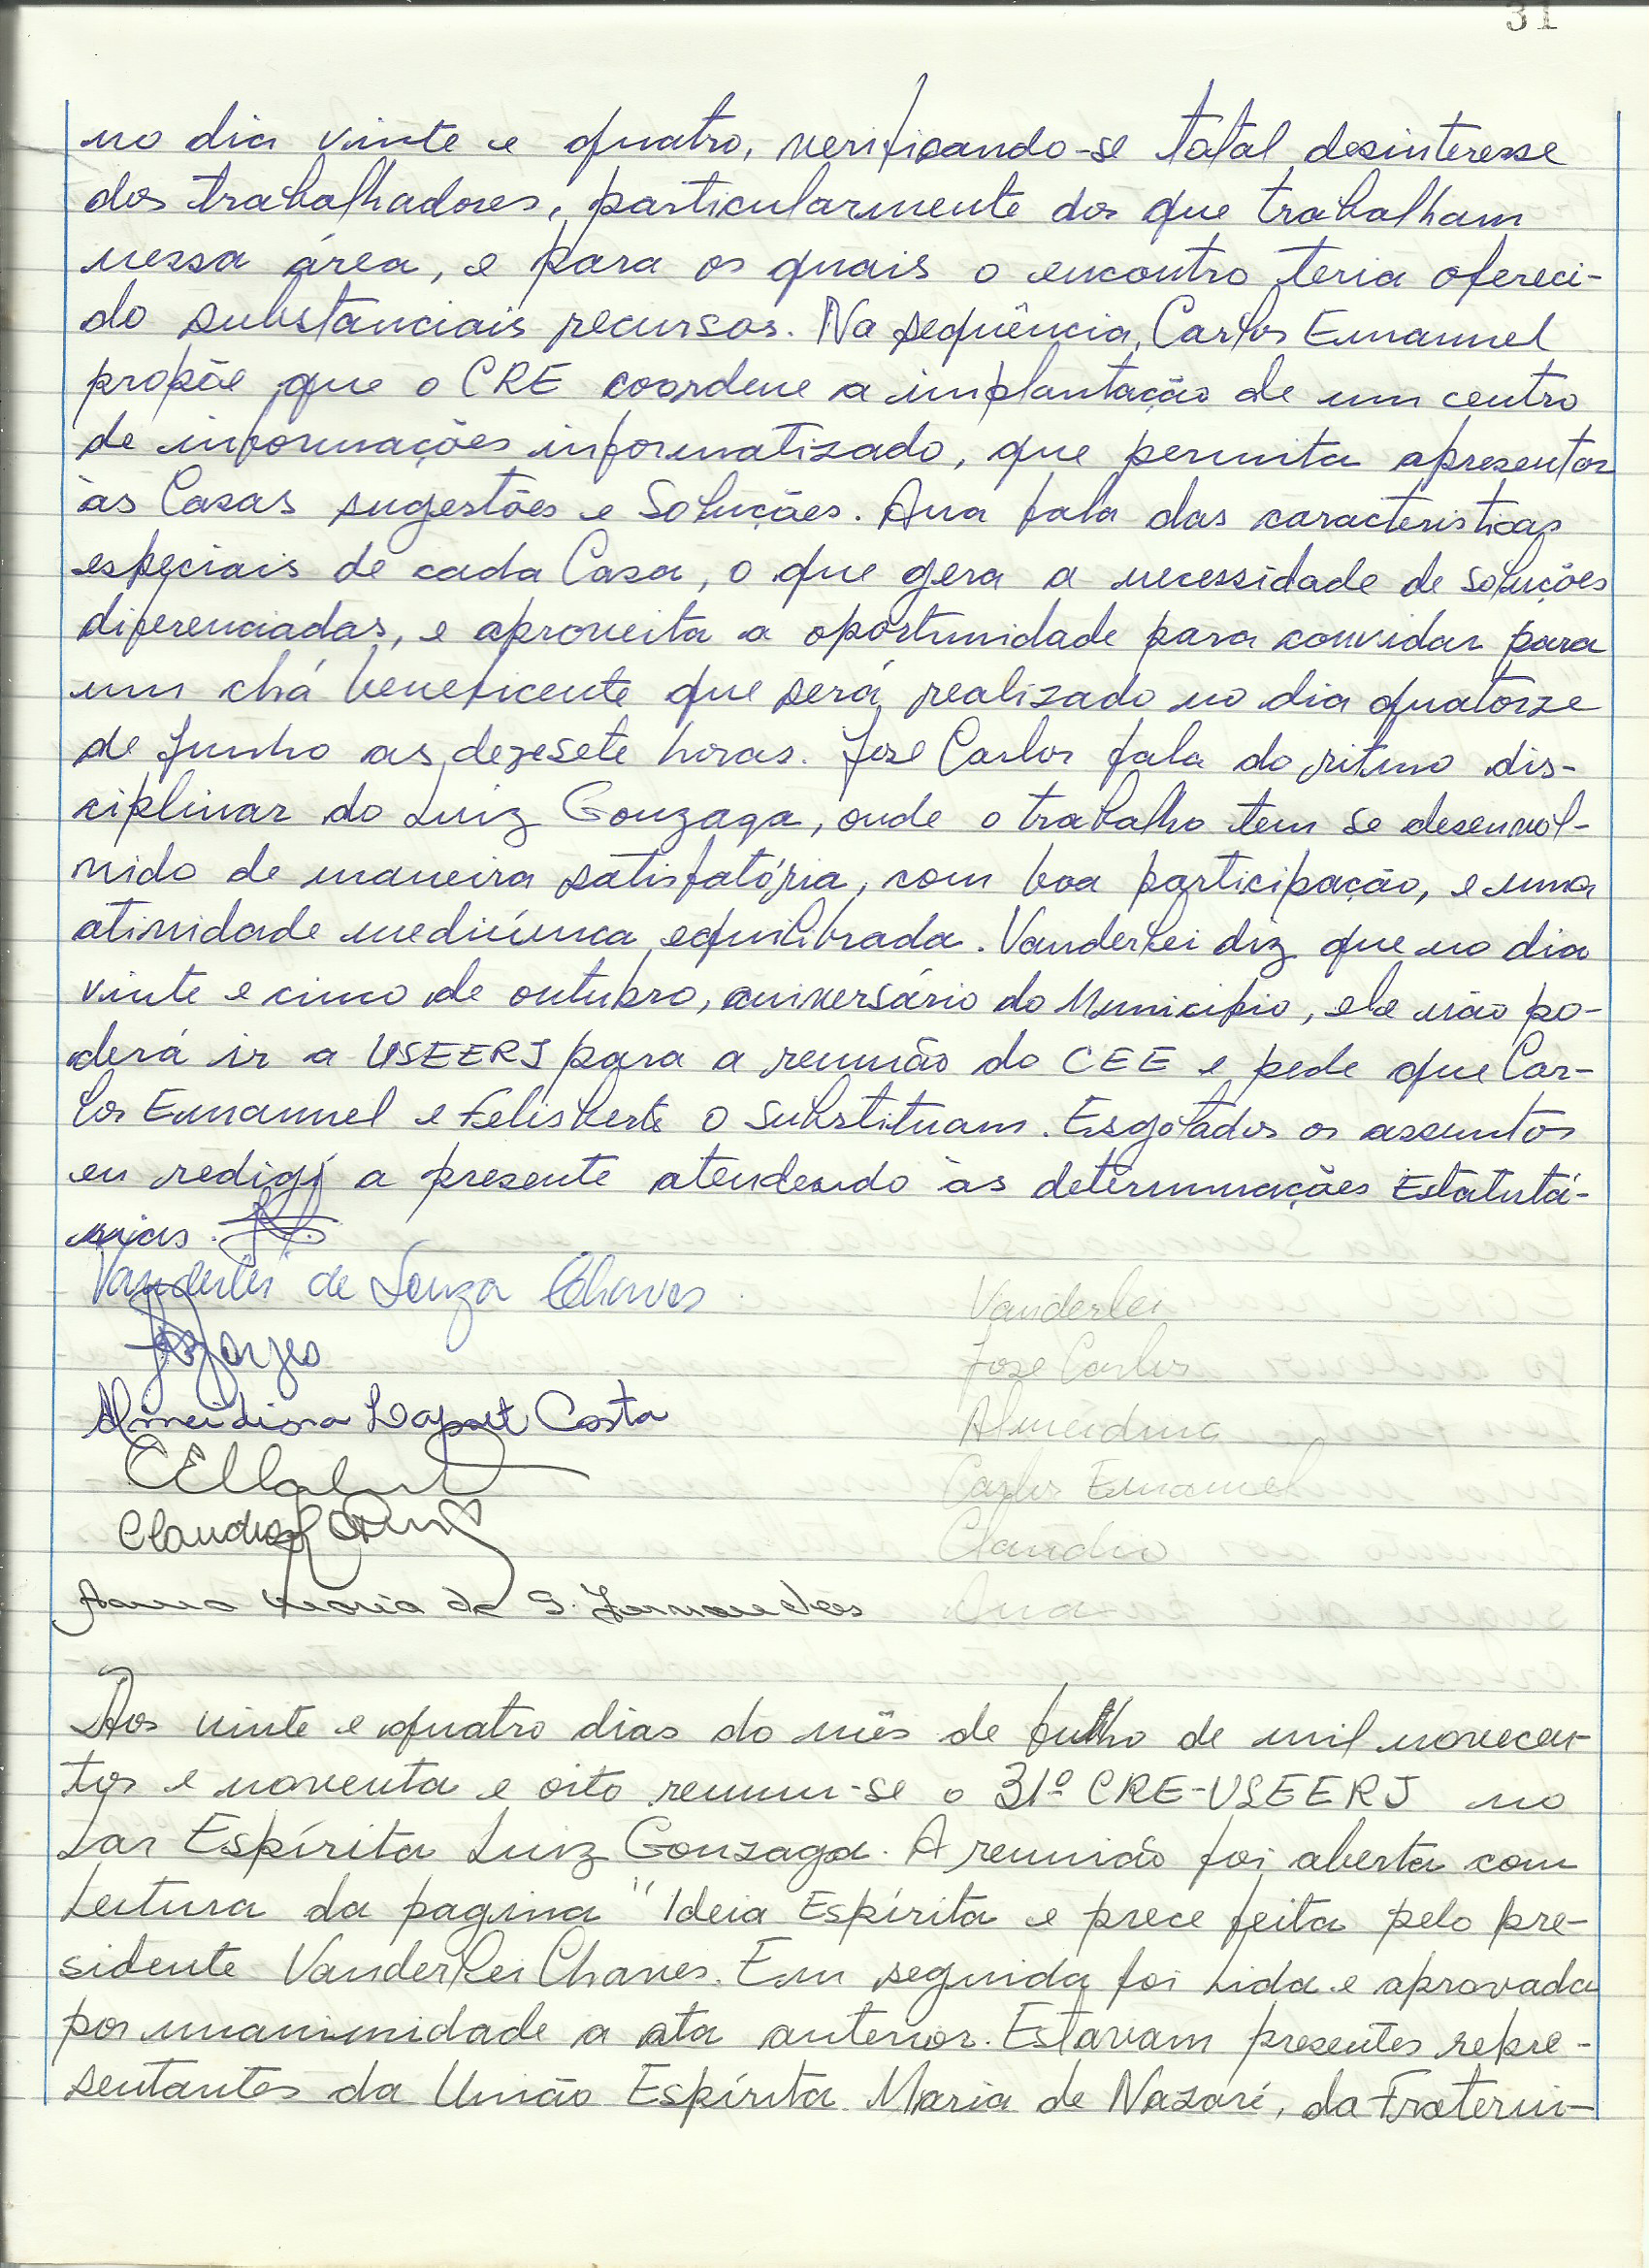 31
no dia vinte e quatro, verificando-se total desinteresse
dos trabalhadores, particularmente dos que trabalham
nessa área, e para os quais o encontro teria ofereci-
do substanciais recursos. Na sequência, Carlos Emanuel
propõe que o CRE coordene a implantação de um centro
de informações informatizado, que permita apresentar
às Casas sugestões e Soluções. Ana fala das caracteristicas
especiais de cada Casa, o que gera a necessidade de soluções
diferenciadas, e aproveita a oportunidade para convidar para
um chá beneficente que será realizado no dia quatorze
de Junho as dezesete horas. José Carlos fala do ritmo dis-
ciplinar do Luiz Gonzaga, onde o trabalho tem se desenvol-
vido de maneira satisfatória, com boa participação, e uma
atividade mediúnica equilibrada. Vanderlei diz que no dia
vinte e cinco de outubro, aniversário do Municipio, ele não po-
derá ir a USEERJ para a reunião do CEE e pede que Car-
los Emanuel e Felisberto o substituam. Esgotados os assuntos
eu redigi a presente atendendo às determinações Estatutá-
rias.
Vanderlei de Souza Chaves Vanderlei
José Carlos
Almeidina Costa Almeidina
Carlos Emanuel
Claudio Claudio
Anna Maria de S. Fernandes Ana
Aos vinte e quatro dias do mês de Julho de mil novecen-
tos e noventa e oito reuniu-se o 31º CRE-USEERJ no
Lar Espírita Luiz Gonzaga. A reunião foi aberta com
Leitura da pagina " Ideia Espírita e prece feita pelo pre-
sidente Vanderlei Chaves. Em seguida foi Lida e aprovada
por unanimidade a ata anterior. Estavam presentes repre-
sentantes da União Espírita Maria de Nazaré, da Fraterni-